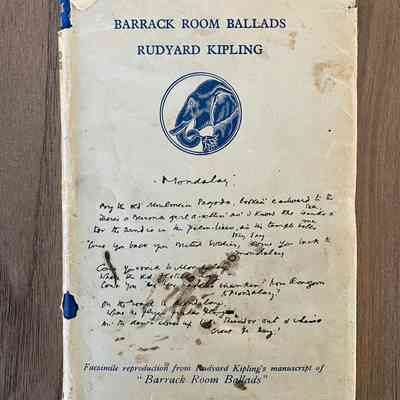 BARRACK ROOM BALLADS
RUDYARD KIPLING
Mandalay
By the old Moulmein Pagoda, lookin' eastward to the
sea
There's a Burma girl a-settin' an' I know she thinks o'
me
For the wind is in the palm-trees, an' the temple bells
they say
"Come you back you British Soldier, Come you back to
Mandalay
Come you back to Mandalay
Where the old Flotilla
Can't you from Rangoon
to Mandalay?
On the road to Mandalay
Where the flyin'
An' the dawn comes up like Thunder out o' China
Crost the Bay!
Facsimile reproduction from Rudyard Kipling's manuscript of
"Barrack Room Ballads"